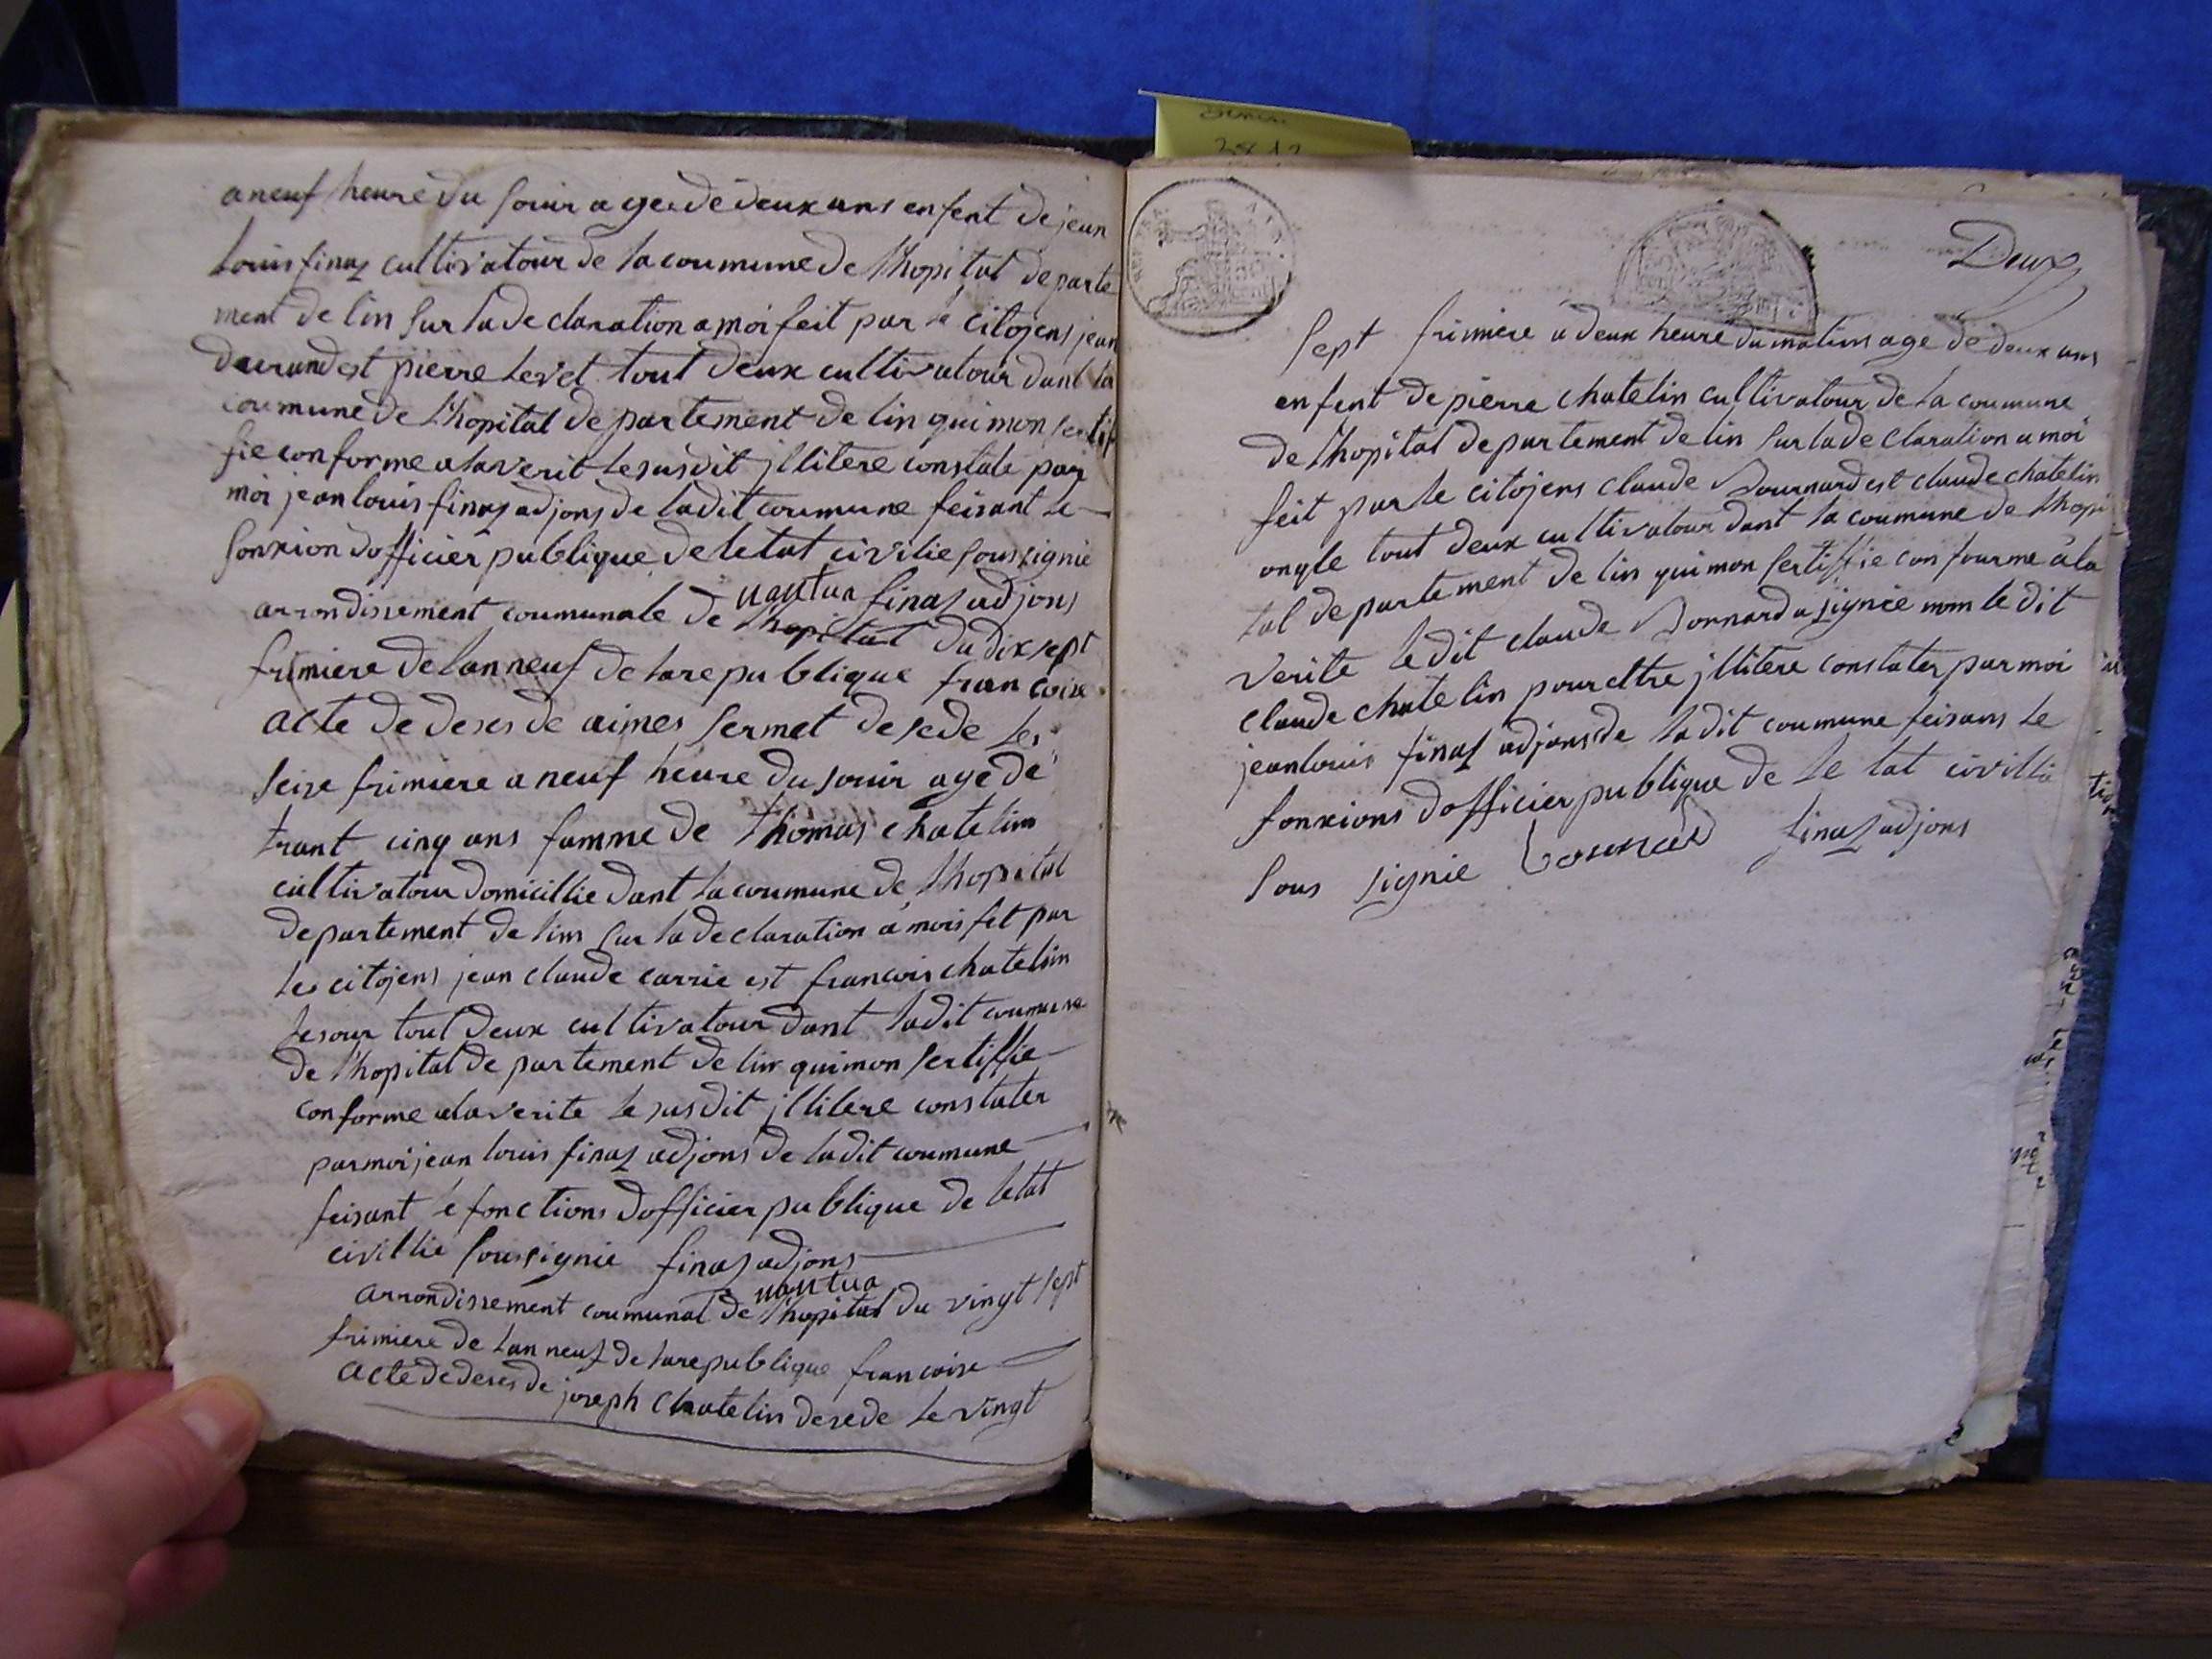 a neuf heure du souir agee de deux ans enfent de jean
louis finaz cultivatour de la coumune de l'hopital departe
ment de lin sur la declaration a moi feit par le citojens jean
durand est pierre levet tout deux cultivatour dant la
coumune de l'hopital departement de lin qui mon sertif
fie conforme a la verit le susdit jllitere constate par
moi jean louis finaz adjons de ladit coumune feisant le
fonxion dofficier publique de letat civilie soussignie
arrondissement coumunale de nantua finaz adjons
l'hopital du dix sept
frimiere de lan neuf de la republique francoise
acte de deses de aimes sermet desede les
seize frimiere a neuf heure du souir age de
trant cinq ans famme de thomas chatelin
cultivatour domicillie dant la coumune de l'hopital
departement de lin sur la declaration a mois fet par
les citojens jean claude carrie est francois chatelin
lesour tout deux cultivatour dant ladit coumune
de l'hopital departement de lin qui mon sertiffie
conforme a la verite le susdit jllitere constater
par moi jean louis finaz adjons de ladit coumune
feisant le fonctions dofficier publique de letat
civillie soussignie finaz adjons
nantua
arrondissement coumunal de l'hopital du vingt sept
frimiere de lan neuf de la republique francoise
acte de deses de joseph chatelin desede le vingt
Deux
sept frimiere a deux heure du matins age de deux ans
enfent de pierre chatelin cultivatour de la coumune
de l'hopital departement de lin sur la declaration a moi
feit par le citojens claude Bournard est claude chatelin
ongle tout deux cultivatour dant la coumune de l'hopi
tal departement de lin qui mon sertiffie confourme a la
verite ledit claude Bornard a signiee nom le dit
claude chatelin pour ettre jllitere constater par moi
jean louis finaz adjons de ladit coumune feisans le
fonxions dofficier publique de le tat civillie
sous signie finaz adjons